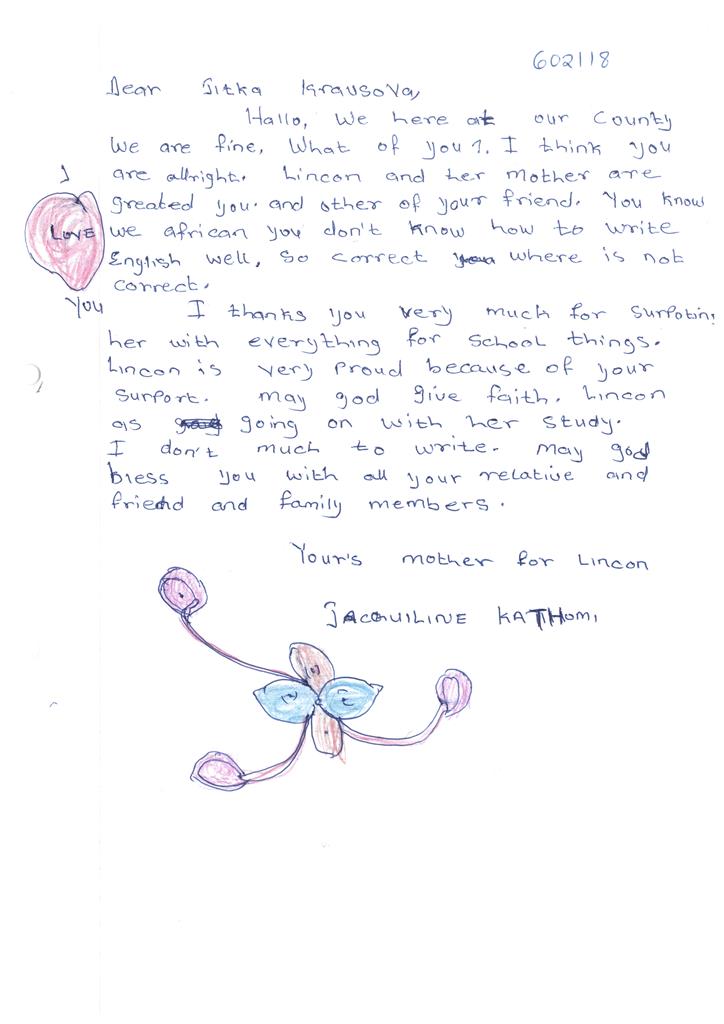 602118
Dear Jitka Krausova,
Hallo, We here at our County
We are fine, What of you?. I think you
are allright. Lincon and her Mother are
greated you. and other of your friend. You know
we african you don't know how to write
English well, So correct where is not
correct.
I
LOVE
You
I thanks you very much for surpotin,
her with everything for school things.
Lincon is very Proud because of your
surport. may god give faith. Lincon
as going on with her study.
I don't much to write. may god
bless you with all your relative and
friend and family members.
Your's mother for Lincon
JACQUILINE KATHOMI